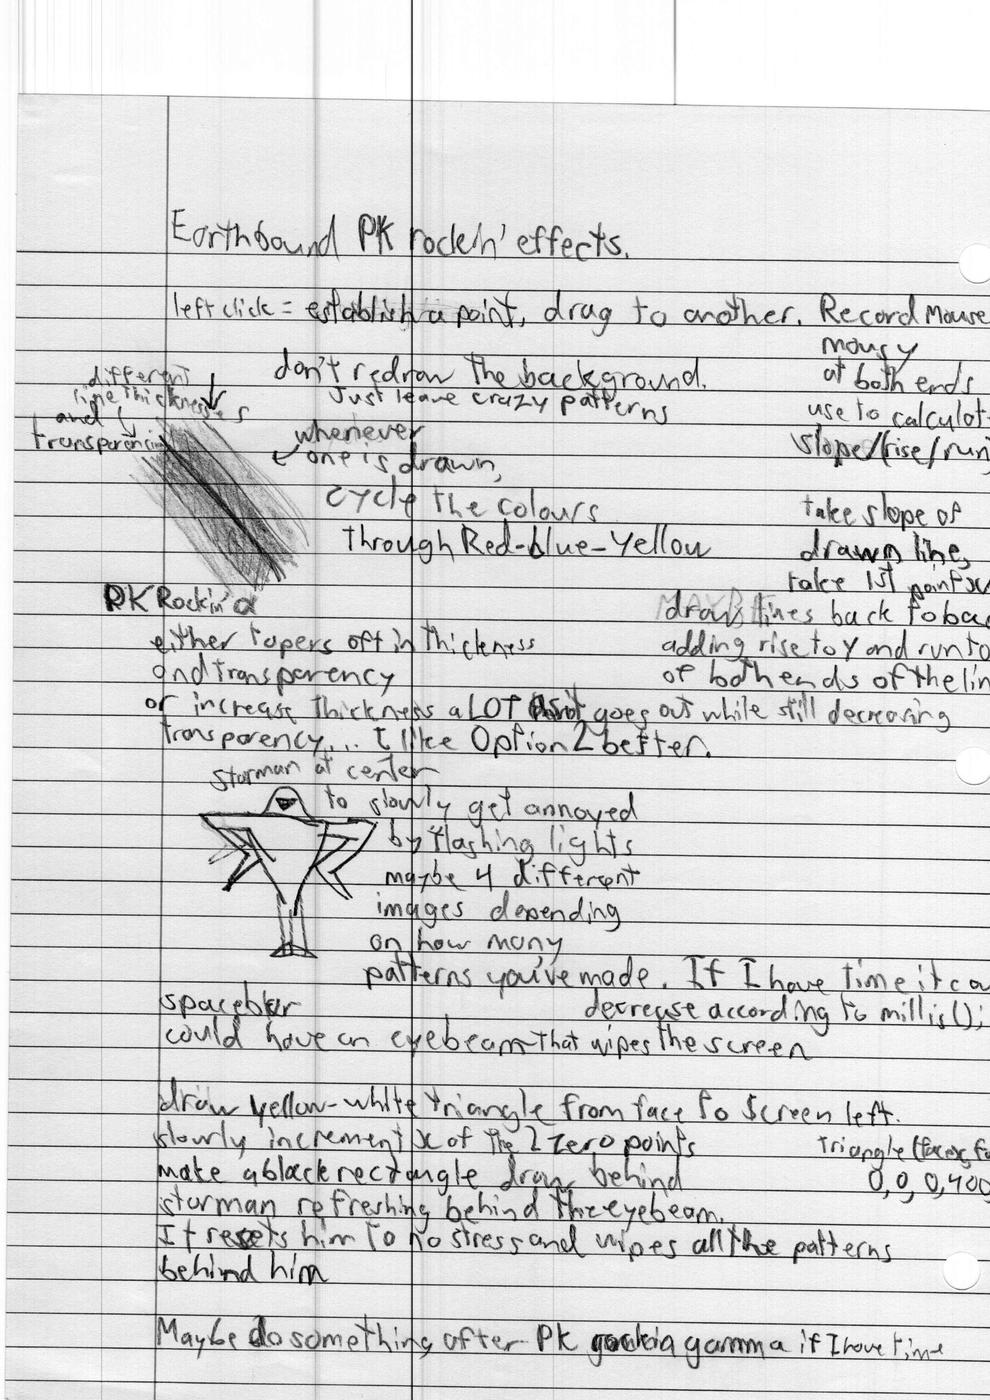 Earthbound PK rockin' effects.
left click = establish a point, drag to another. Record Mouse
mousy
at both ends
use to calculat
slope/(rise/run)
different
line thicknesses
and
transparencies
don't redraw the background.
Just leave crazy patterns
whenever
one is drawn,
cycle the colours
through Red-blue-Yellow
take slope of
drawn line,
take 1st point x
draw lines back to bac
adding rise to y and run to
of both ends of the lin
PK Rockin' α
either tapers off in thickness
and transparency
or increase thickness a LOT as it goes out while still decreasing
transparency... I like Option 2 better.
starman at center
to slowly get annoyed
by flashing lights
maybe 4 different
images depending
on how many
patterns you've made. If I have time it co
decrease according to millis();
spacebar
could have an eyebeam that wipes the screen
draw yellow-white triangle from face to screen left.
slowly increment x of the 2 zero points
triangle(facex, fa
0, 0, 0, 400
make a black rectangle draw behind
starman refreshing behind the eyebeam.
It resets him to no stress and wipes all the patterns
behind him
Maybe do something after PK gamma if I have time